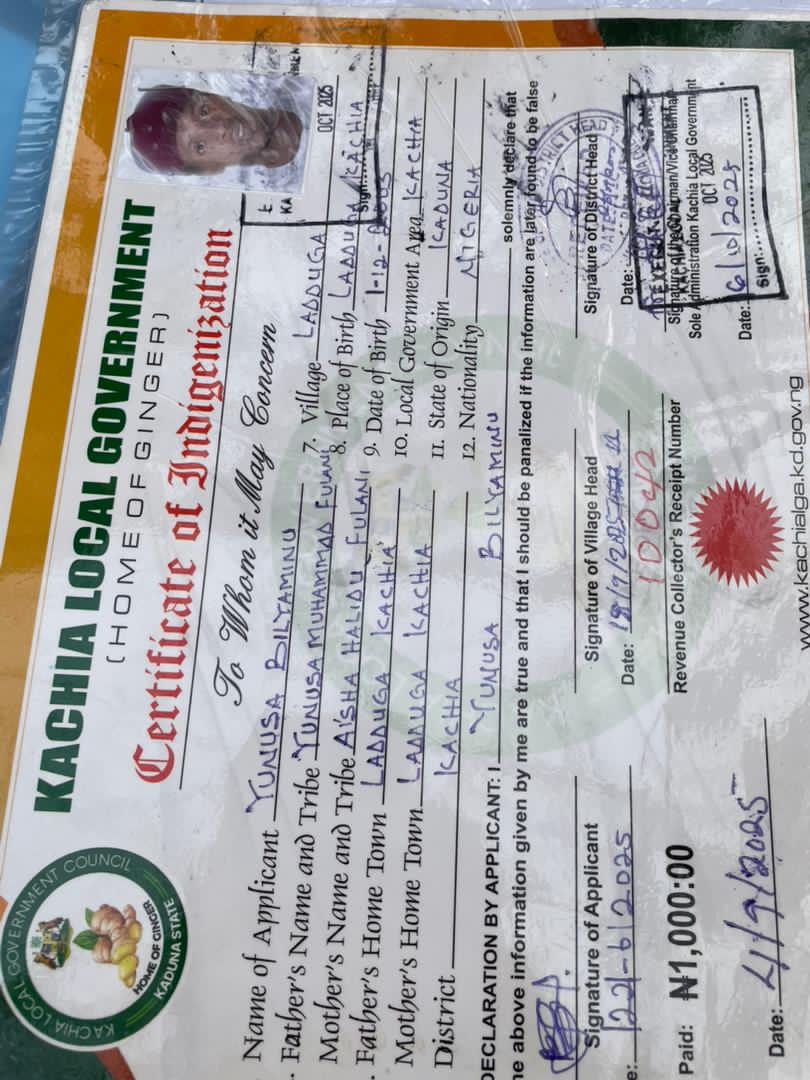 KACHIA LOCAL GOVERNMENT
(HOME OF GINGER)
Certificate of Indigenization
To Whom it May Concern
KACHIA LOCAL GOVERNMENT COUNCIL
HOME OF GINGER
KADUNA STATE
OCT 2025
Name of Applicant YUNUSA BILYAMINU
Father's Name and Tribe YUNUSA MUHAMMAD FULANI
Mother's Name and Tribe A'ISHA HALIDU FULANI
Father's Home Town LADDUGA KACHIA
Mother's Home Town LADDUGA KACHIA
District KACHIA
7. Village LADDUGA
8. Place of Birth LADDUGA KACHIA
9. Date of Birth 1-12-
10. Local Government Area KACHIA
11. State of Origin KADUNA
12. Nationality NIGERIA
Sign:
DECLARATION BY APPLICANT: I YUNUSA BILYAMINU solemnly declare that
he above information given by me are true and that I should be panalized if the information are later found to be false
Signature of Applicant
e: 22-6-2025
Signature of Village Head
Date: 18/9/2025
Signature of District Head
DISTRICT HEAD
Date:
Paid: ₦1,000:00
10042
Revenue Collector's Receipt Number
Sole Administration Kachia Local Government
OCT 2025
Date: 6/10/2025
Sign:
Date: 4/9/2025
www.kachialga.kd.gov.ng